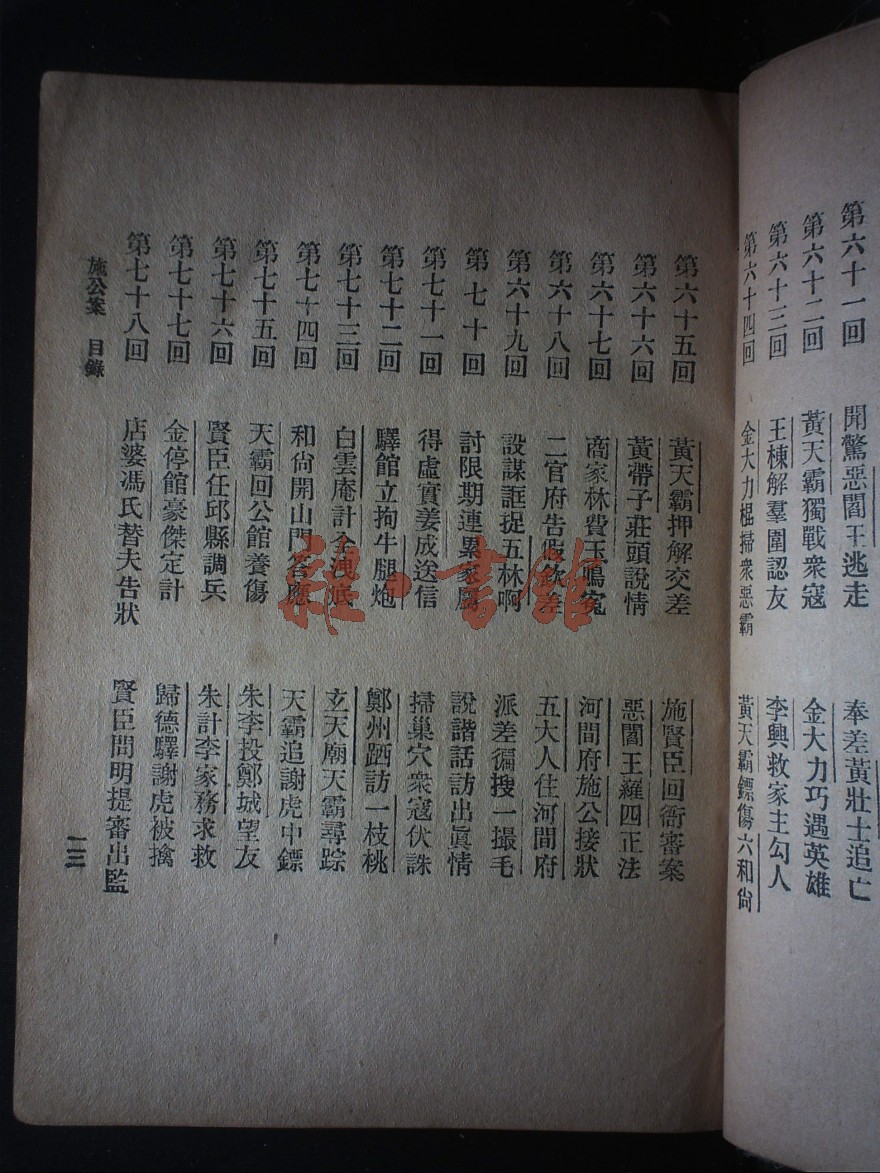 第六十一回 聞驚惡閻王逃走 奉差黃壯士追亡
第六十二回 黃天霸獨戰衆寇 金大力巧遇英雄
第六十三回 王棟解羣圍認友 李興救家主勾人
第六十四回 金大力棍掃衆惡霸 黃天霸鏢傷六和尙
第六十五回 黃天霸押解交差 施賢臣回衙審案
第六十六回 黃帶子莊頭說情 惡閻王羅四正法
第六十七回 商家林費玉鳴寃 河間府施公接狀
第六十八回 二官府告假欽差 五大人住河間府
第六十九回 設謀誆捉五林啊 派差徧搜一撮毛
第七十回 討限期連累家屬 說諧話訪出眞情
第七十一回 得虛實姜成送信 掃巢穴衆寇伏誅
第七十二回 驛館立拘牛腿炮 鄭州跴訪一枝桃
第七十三回 白雲庵計全洩底 玄天廟天霸尋踪
第七十四回 和尙開山門答應 天霸追謝虎中鏢
第七十五回 天霸回公館養傷 朱李投鄭城望友
第七十六回 賢臣任邱縣調兵 朱計李家務求救
第七十七回 金停館豪傑定計 歸德驛謝虎被擒
第七十八回 店婆馮氏替夫告狀 賢臣問明提審出監
施公案 目錄 一三
書館